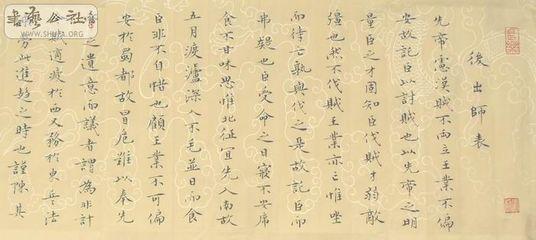 書藝公社
www.shufa.org
後出師表
先帝慮漢賊不兩立王業不偏
安故託臣以討賊也以先帝之明
量臣之才固知臣伐賊才弱敵
彊也然不伐賊王業亦亡惟坐
而待亡孰與伐之是故託臣而
弗疑也臣受命之日寢不安席
食不甘味思惟北征宜先入南故
五月渡瀘深入不毛並日而食
臣非不自惜也顧王業不可偏
安於蜀都故冒危難以奉先
之遺意而議者謂為非計
賊適疲於西又務於東兵法
勞此進趨之時也謹陳其